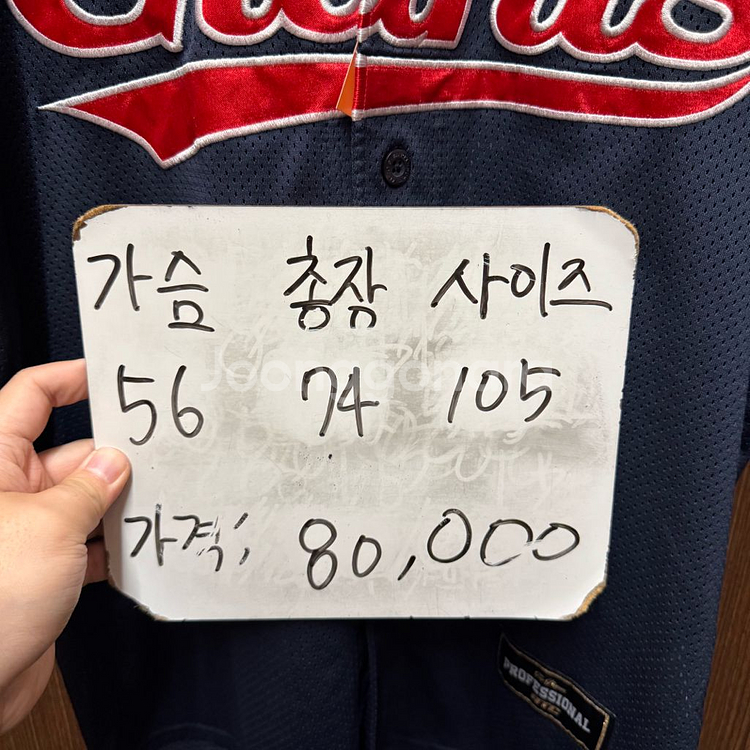 가슴 총장 사이즈
56 74 105
가격; 80,000
PROFESSIONAL